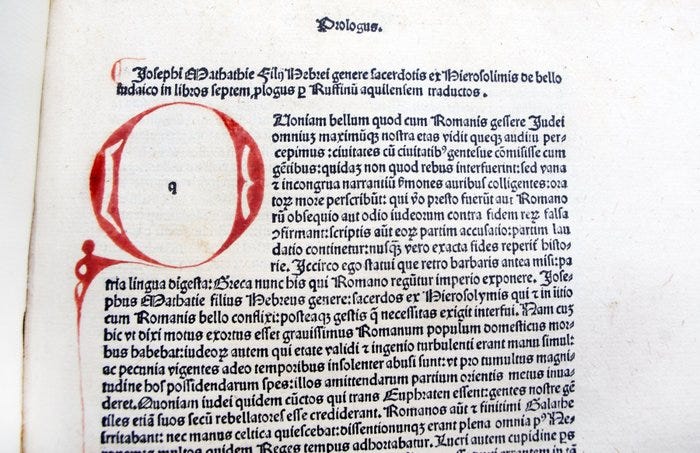 Prologus.
Josephi Mathathie Filij Hebrei genere sacerdotis ex Hierosolimis de bello
Iudaico in libros septem ꝓlogus ꝑ Ruffinū aquilensem traductos.
Q
q
Uoniam bellum quod cum Romanis gessere Judei
omniuꝫ maximūqꝫ nostra etas vidit queqꝫ auditu per-
cepimus: ciuitates cū ciuitatibꝰ gentesue cōmisisse cum
gētibus: quidaꝫ non quod rebus interfuerint: sed vana
⁊ incongrua narrantiū s̓mones auribus colligentes: ora
toꝝ more perscribūt: qui v̓o presto fuerūt aut Romano
rū obsequio aut odio iudeorum contra fidem reꝝ falsa
ꝯfirmant: scriptis aūt eoꝝ partim accusatio: partim lau
datio continetur: nusq̄ꝫ vero exacta fides reperit̄ histo-
rie. Jccirco ego statui que retro barbaris antea misi: pa
tria lingua digesta: Greca nunc his qui Romano regūtur imperio exponere. Jose-
phus Mathatie filius Hebreus genere: sacerdos ex Hierosolymis qui ⁊ in iitio
cum Romanis bello conflixi: posteaqꝫ gestis q̄ necessitas exigit interfui. Nam cuꝫ
hic vt dixi motus exortus esset grauissimus Romanum populum domesticus mor-
bus habebat: iudeoꝝ autem qui etate validi ⁊ ingenio turbulenti erant manu simul:
ac pecunia vigentes adeo temporibus insolenter abusi sunt: vt pro tumultus magni-
tudine hos possidendarum spes: illos amittendarum partium orientis metus inua-
deret. Quoniam iudei quidem cūctos qui trans Euphraten essent: gentes nostre gē
tiles etiā suos secū rebellatores esse crediderant. Romanos aūt ⁊ finitimi Galathe
irritabant: nec manus celtica quiescebat: dissentionūqꝫ erant plena omnia pꝰ Ne-
ronemes multos quidem Reges tempus adhortabatur. Lucri autem cupidine p̄s